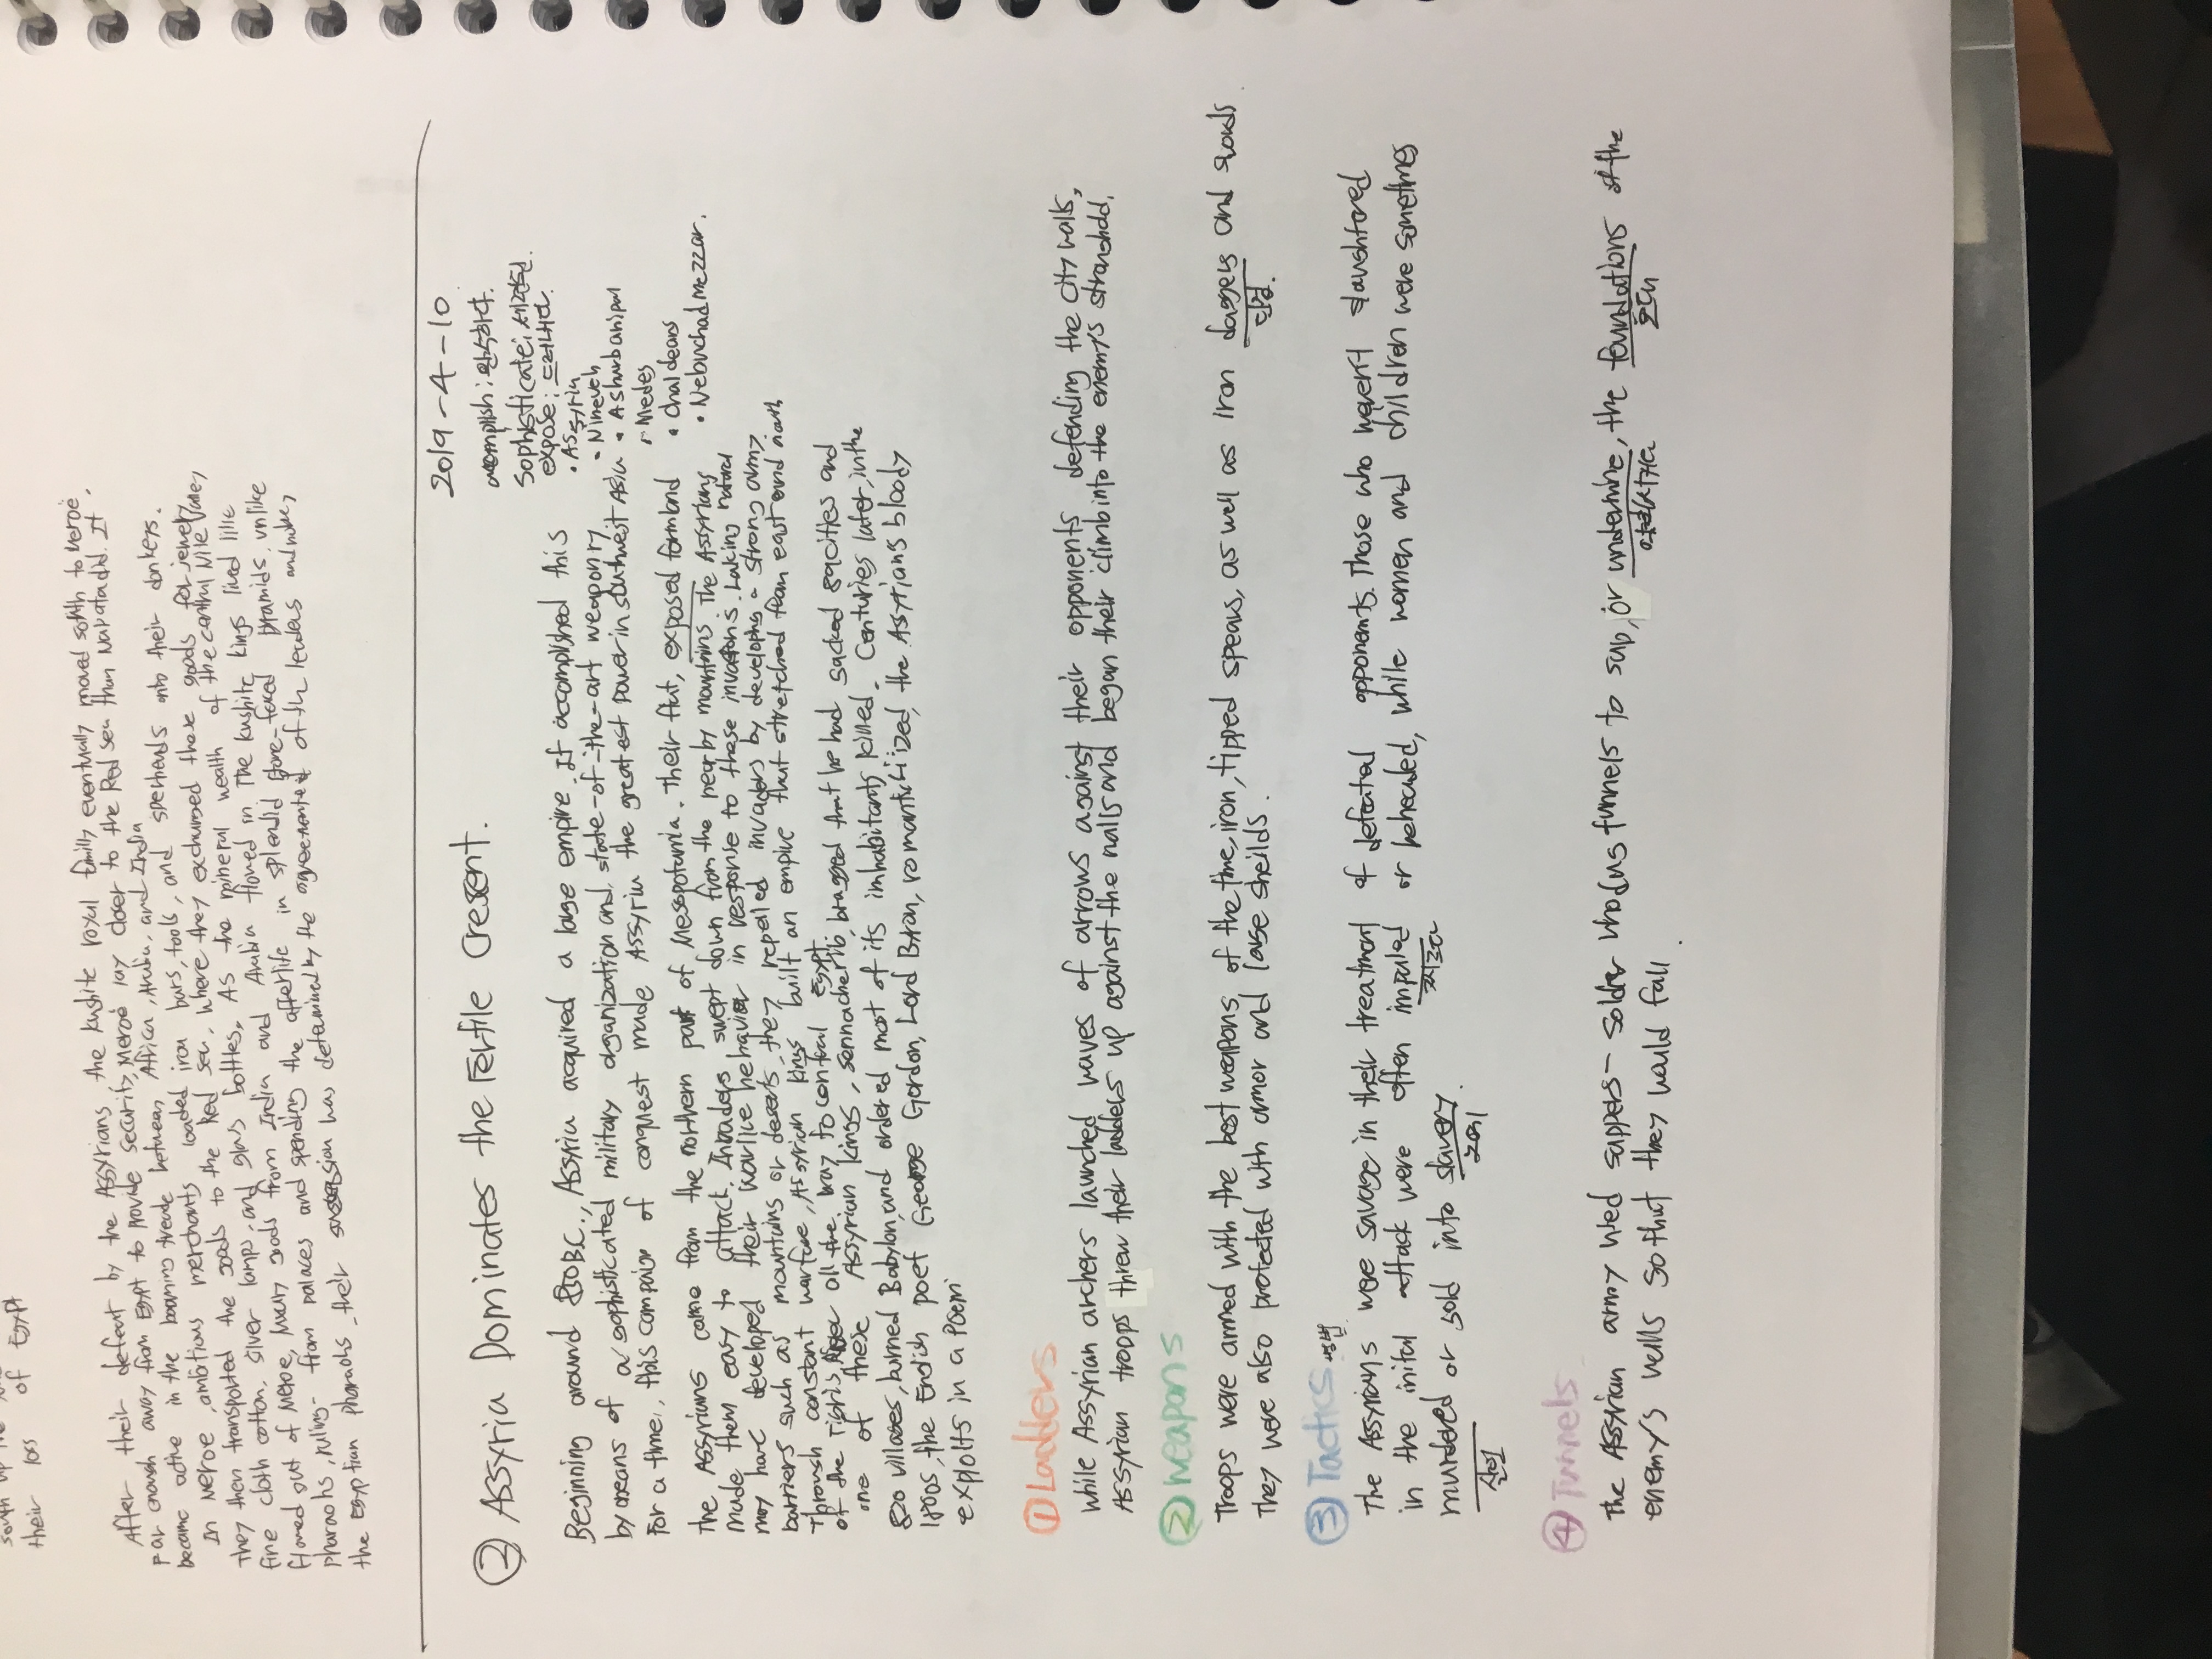 south up the
their loss of Egypt
After their defeat by the Assyrians, the kushite royal family eventually moved south to Meroë.
Far enough away from Egypt to provide security, Meroë lay closer to the Red sea than Napata did. It
became active in the booming trade between Africa, Arabia, and India
In Meroe, ambitious merchants loaded iron bars, tools, and spearheads onto their donkeys.
they then transported the goods to the Red sea, where they exchanged these goods for jewelry,
fine cloth cotton, silver lamps, and glass bottles. As the mineral wealth of the central Nile Valley
flowed out of Meroe, luxury goods from India and Arabia flowed in The kushite kings lived like
pharaohs, ruling from palaces and spending the afterlife in splendid pyramids. unlike
the Egyptian pharaohs, their succession was determined by the agreement of the leaders and
2019-4-10
② Assyria Dominates the Fertile Cresent.
accomplish; 완수하다.
Sophisticate; 세련된.
expose; 드러내다.
• Assyria
• Nineveh
• Ashurbanipal
• Medes
• Chaldeans
• Nebuchadnezzar.
Beginning around 850B.C., Assyria acquired a large empire. It accomplished this
by means of a sophisticated military organization and state-of-the-art weaponry
For a time, this campaign of conquest made Assyria the greatest power in southwest Asia
The Assyrians came from the northern part of Mesopotamia. their flat, exposed farmland
made them easy to attack. Invaders swept down from the nearby mountains The Assyrians
may have developed their warlike behavior in response to these invasions. Laking natural
barriers such as mountains or deserts, they repelled invaders by developing a strong army
Through constant warfare, Assyrian kings built an empire that stretched from east and north
of the Tigris River all the way to central Egypt.
one of these Assyrian kings, Sennacherib, bragged that he had sacked 89cities and
820 villages, burned Babylon, and ordered most of its inhabitants killed. Centuries later, in the
1800s, the English poet George Gordon, Lord Byron, romanticized the Assyrians bloody
exploits in a poem
① Ladders
While Assyrian archers launched waves of arrows against their opponents defending the city walls,
Assyrian troops threw their ladders up against the walls and began their climb into the enemy's stronghold.
② Weapons
Troops were armed with the best weapons of the time, iron, tipped spears, as well as iron daggers and swords
단검.
They were also protected with armor and large sheilds.
③ Tactics 방법
The Assyrians were savage in their treatment of defeated opponents. Those who weren't slaughtered
in the initial attack were often impaled or beheaded, while women and children were sometimes
찌르다
murdered or sold into slavery.
살인 노예
④ Tunnels
The Assyrian army used sappers- soldier who dug tunnels to sap, or undermine, the foundations of the
약화시키다 토대
enemy's walls so that they would fall.